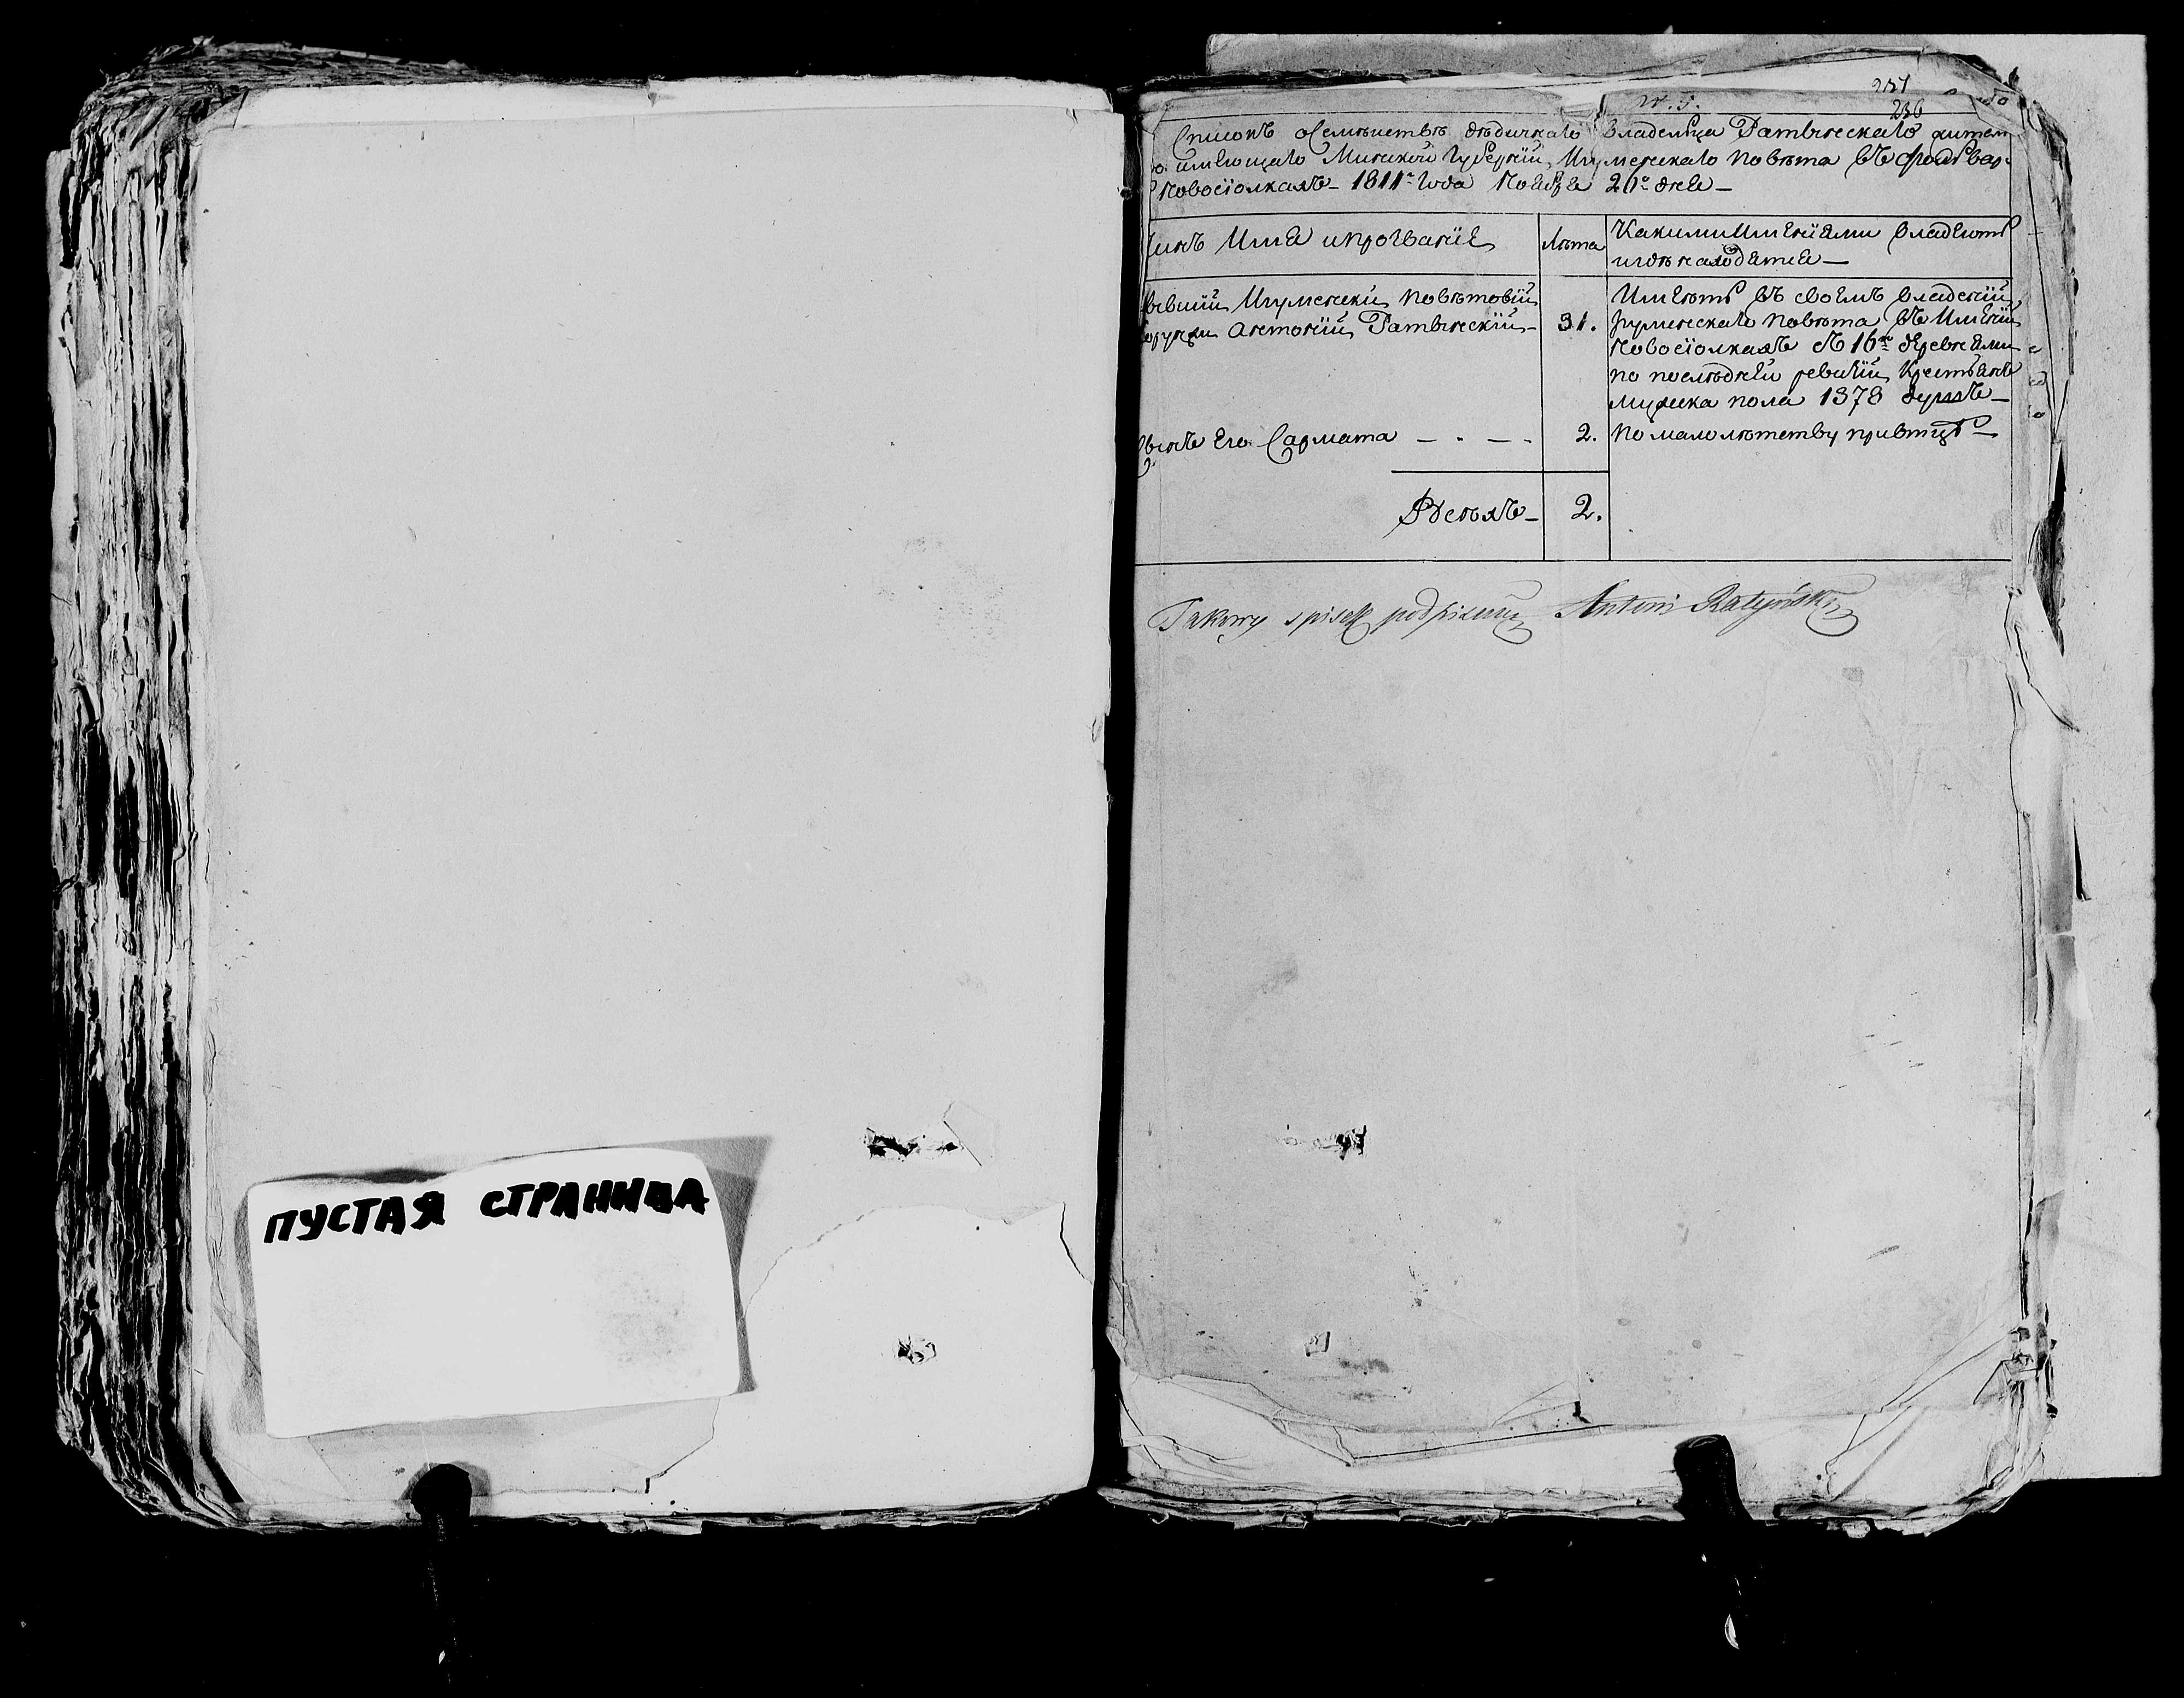 ПУСТАЯ СТРАНИЦА
237
236
Списокъ о Семѣиствѣ дѣдичнаго владельца Ратынскаго жител
имѣющаго Минской Губерніи Игуменскаго повѣта въ Фольвар
Новосіолкахъ 1811го года Ноября 20го дня
Чинъ Имя и прозваніе
Лѣта
Какими Имѣніями владеютъ
и гдѣ находятся
бывшій Игуменскій повѣтовій
хорунжи Антоній Ратынскій
31.
Имѣютъ въ своемъ владеніи
Игуменскаго повѣта въ Имѣніи
Новосіолкахъ съ 16ю деревнями
по послѣдней ревизіи крестьянъ
мужска пола 1378 душъ
Сынъ Его Сармата
2.
по малолѣтству при отцѣ
Всѣхъ
2.
Takowy spisek podpisuię Antoni Ratyński